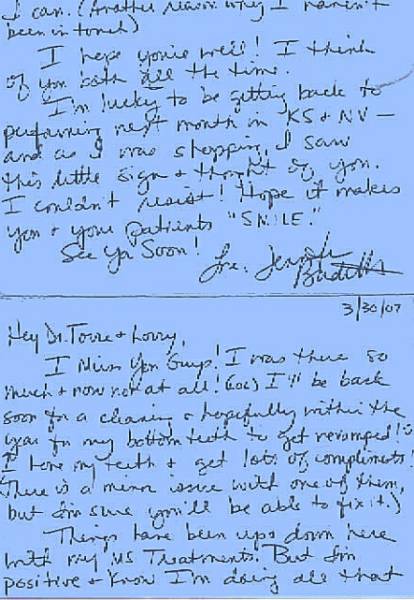 I can. (Another reason why I haven't
been in touch)
I hope you're well! I think
of you both all the time.
I'm lucky to be getting back to
performing next month in KS + NV —
and as I was shopping, I saw
this little sign + thought of you.
I couldn't resist! Hope it makes
you + your patients "SMILE."
See Ya Soon!
Love, Jennifer
3/30/07
Hey Dr. Torre + Lorry,
I Miss You Guys! I was there so
much + now not at all! (LOL) I'll be back
soon for a cleaning + hopefully within the
year for my bottom teeth to get revamped!
I love my teeth + get lots of compliments!
(There is a minor issue with one of them,
but I'm sure you'll be able to fix it.)
Things have been up + down here
with my MS Treatments. But I'm
positive + know I'm doing all that